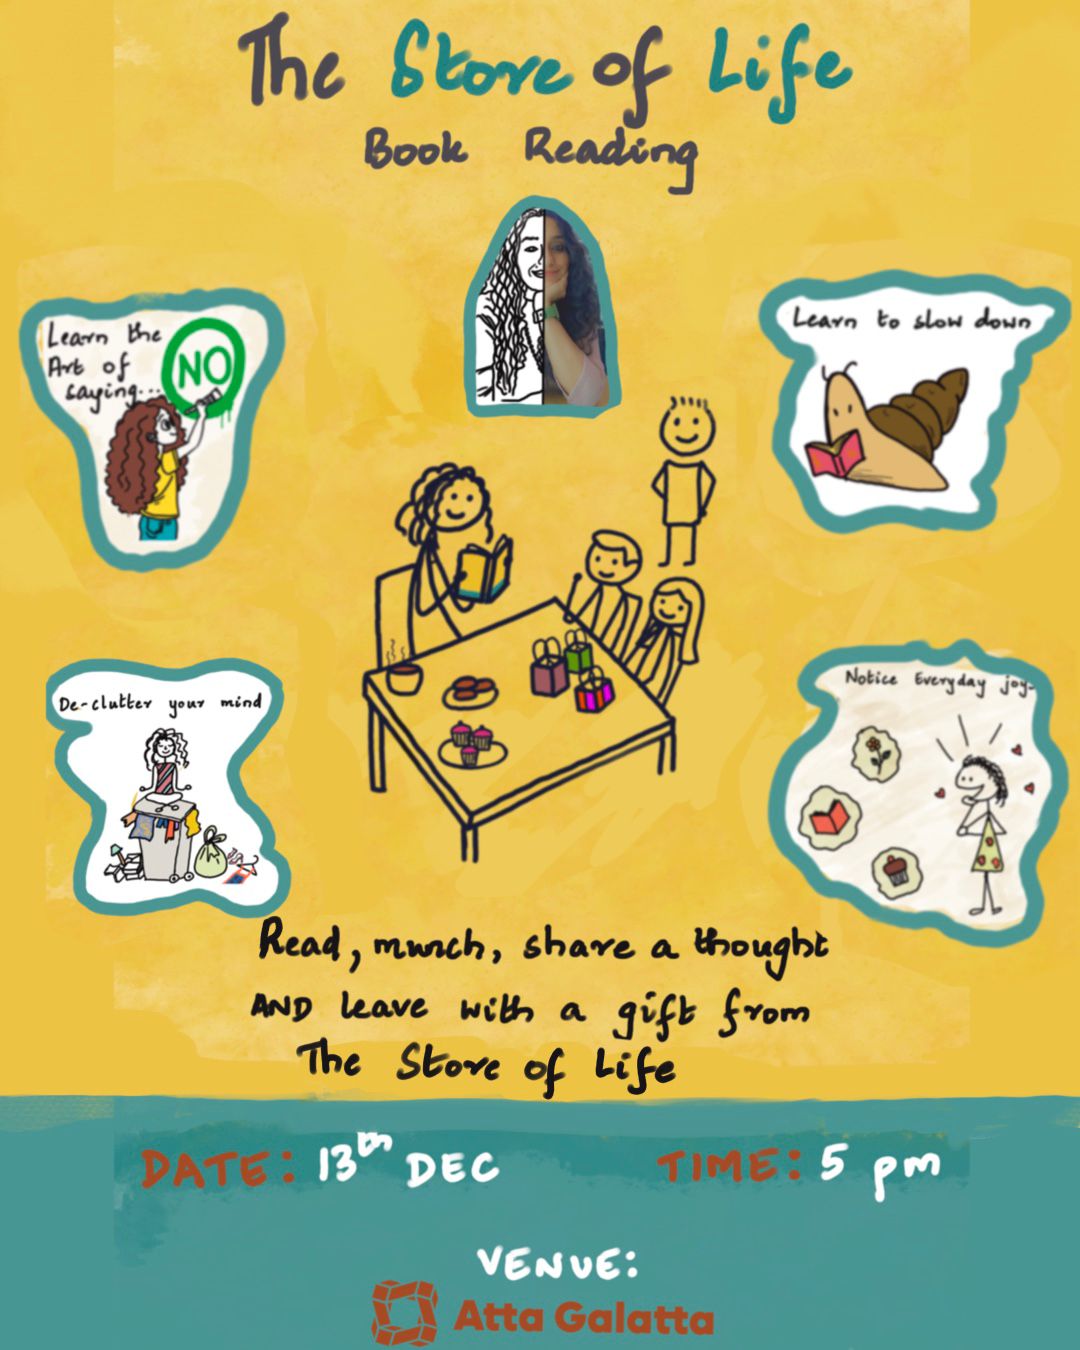 The Store of Life
Book Reading
Learn the
Art of
saying...
NO
Learn to slow down
De-clutter your mind
Notice Everyday joy-
Read, munch, share a thought
AND leave with a gift from
The Store of Life
DATE: 13th DEC
TIME: 5 pm
VENUE:
Atta Galatta